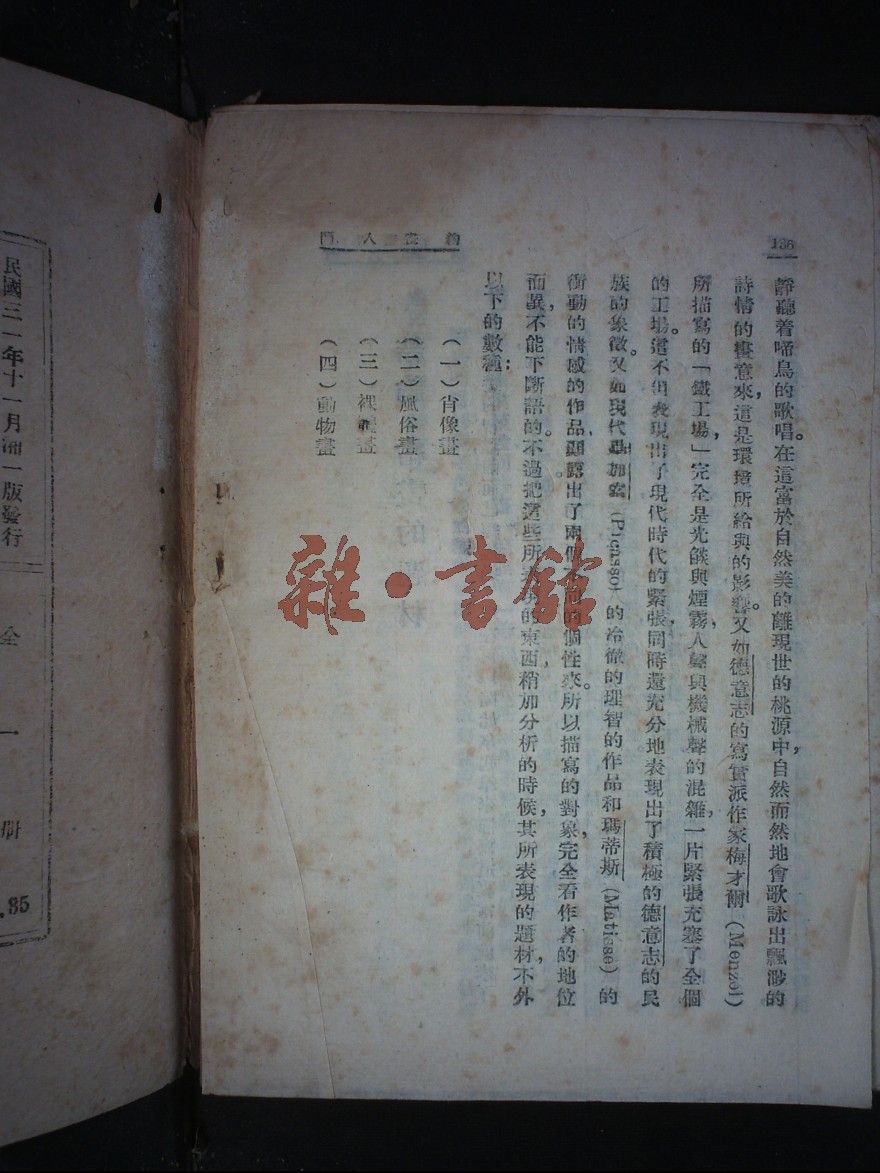 136
繪畫入門
靜聽着啼鳥的歌唱。在這富於自然美的離現世的桃源中，自然而然地會歌詠出飄渺的
詩情的畫意來，這是環境所給與的影響。又如德意志的寫實派作家梅才爾（Menzel）
所描寫的「鐵工場」，完全是光燄與煙霧，人聲與機械聲的混雜，一片緊張充塞了全個
的工場。這不但表現出了現代時代的緊張，同時還充分地表現出了積極的德意志的民
族的象徵。又如現代畢加索（Picasso）的冷徹的理智的作品和瑪蒂斯（Matisse）的
衝動的情感的作品，顯露出了兩個不同個性來。所以描寫的對象，完全看作者的地位
而異，不能下斷語的。不過把這些所表現的東西，稍加分析的時候，其所表現的題材，不外
以下的數種：
（一）肖像畫
（二）風俗畫
（三）裸體畫
（四）動物畫
民國三一年十一月湘一版發行
全 一 册
.85
雜·書館